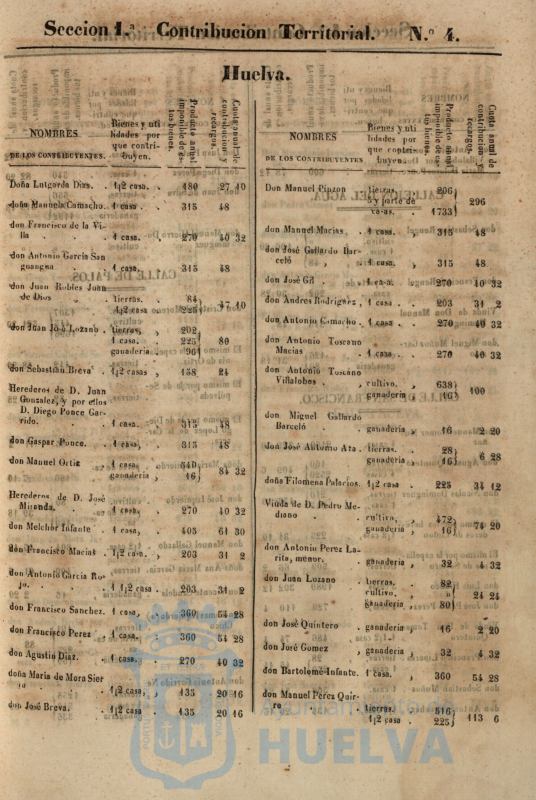 Seccion 1.ª Contribucion Territorial. N.º 4.
Huelva.
NOMBRES
DE LOS CONTRIBUYENTES.
Bienes y uti
lidades por
que contri-
buyen.
Producto anual
imponible de es-
tos bienes.
Cuota anual de
contribucion y
recargos.
Doña Lutgorda Dias. . 1|2 casa. . 480 27 40
doña Manuela Camacho. . 1 casa. . 315 48
don Francisco de la Vi-
lla . . 1 casa. . 270 40 32
don Antonio Garcia San
guangua . 1 casa. . 315 48
don Juan Robles Juan
de Dios . tierras. . 84
1|2 casa 225 47 40
don Juan José Lozano . tierras, . 202
1 casa. . 225 80
ganaderia . 96
don Sebastian Breva . 1|2 casas . 158 24
Herederos de D. Juan
Gonzalez, y por ellos
D. Diego Ponce Gar-
rido. . 1 casa. . 315 48
don Gaspar Ponce. . 1 casa. . 315 48
don Manuel Ortiz . 1 casa. 540
ganaderia , 16 84 32
Herederos de D. José
Miranda. . 1 casa. . 270 40 32
don Melchor Infante . 1 casa, . 405 61 30
don Francisco Macias . 1|2 casa. . 203 31 2
don Antonio Garcia Ro-
jo. . 1 1|2 casa . 203 31 2
don Francisco Sanchez. . 1 casa. . 360 54 28
don Francisco Perez . 1 casa. . 360 54 28
don Agustin Diaz. . 1 casa. . 270 40 32
doña Maria de Mora Sier
. 1|2 casa, . 135 20 16
don José Breva. . 1|2 casa . 135 20 16
NOMBRES
DE LOS CONTRIBUYENTES
Bienes y uti
lidades por
que contri-
buyen.
Producto anual
imponible de es-
tos bienes.
Cuota anual de
contribucion y
recargos.
Don Manuel Pinzon tierras, 206
5 y parte de 296
casas. 1733
don Manuel Macias . 1 casa. , 315 48
don José Gallardo Bar-
celó , . 1 casa. . 315 48
don José Gil . 1 casa. . 270 40 32
don Andres Rodriguez, . 1 casa . . 203 31 2
don Antonio Camacho . 1 casa . . 270 40 32
don Antonio Toscano
Macias . 1 casa. . 270 40 32
don Antonio Toscano
Villalobos , cultivo, . 638
ganaderia 16 100
don Miguel Gallardo
Barceló . ganaderia , 16 2 20
don José Antonio Ata . tierras. 28
ganaderia , 16 6 28
doña Filomena Palacios. 1|2 casa . 225 34 12
Viuda de D. Pedro Me-
diano . cultivo, 472
ganaderia , 16 74 20
don Antonio Perez La-
rita, menor. . ganaderia , 32 4 32
don Juan Lozano . tierras. 82
cultivo, . » 24 24
ganaderia , 80
don José Quintero . ganaderia , 16 2 20
don José Gomez , ganaderia , 32 4 32
don Bartolomé Infante. 1 casa. . 360 54 28
don Manuel Perez Quin-
ro . tierras. . 516
1|2 casa . 225 113 6
Ayuntamiento de
HUELVA